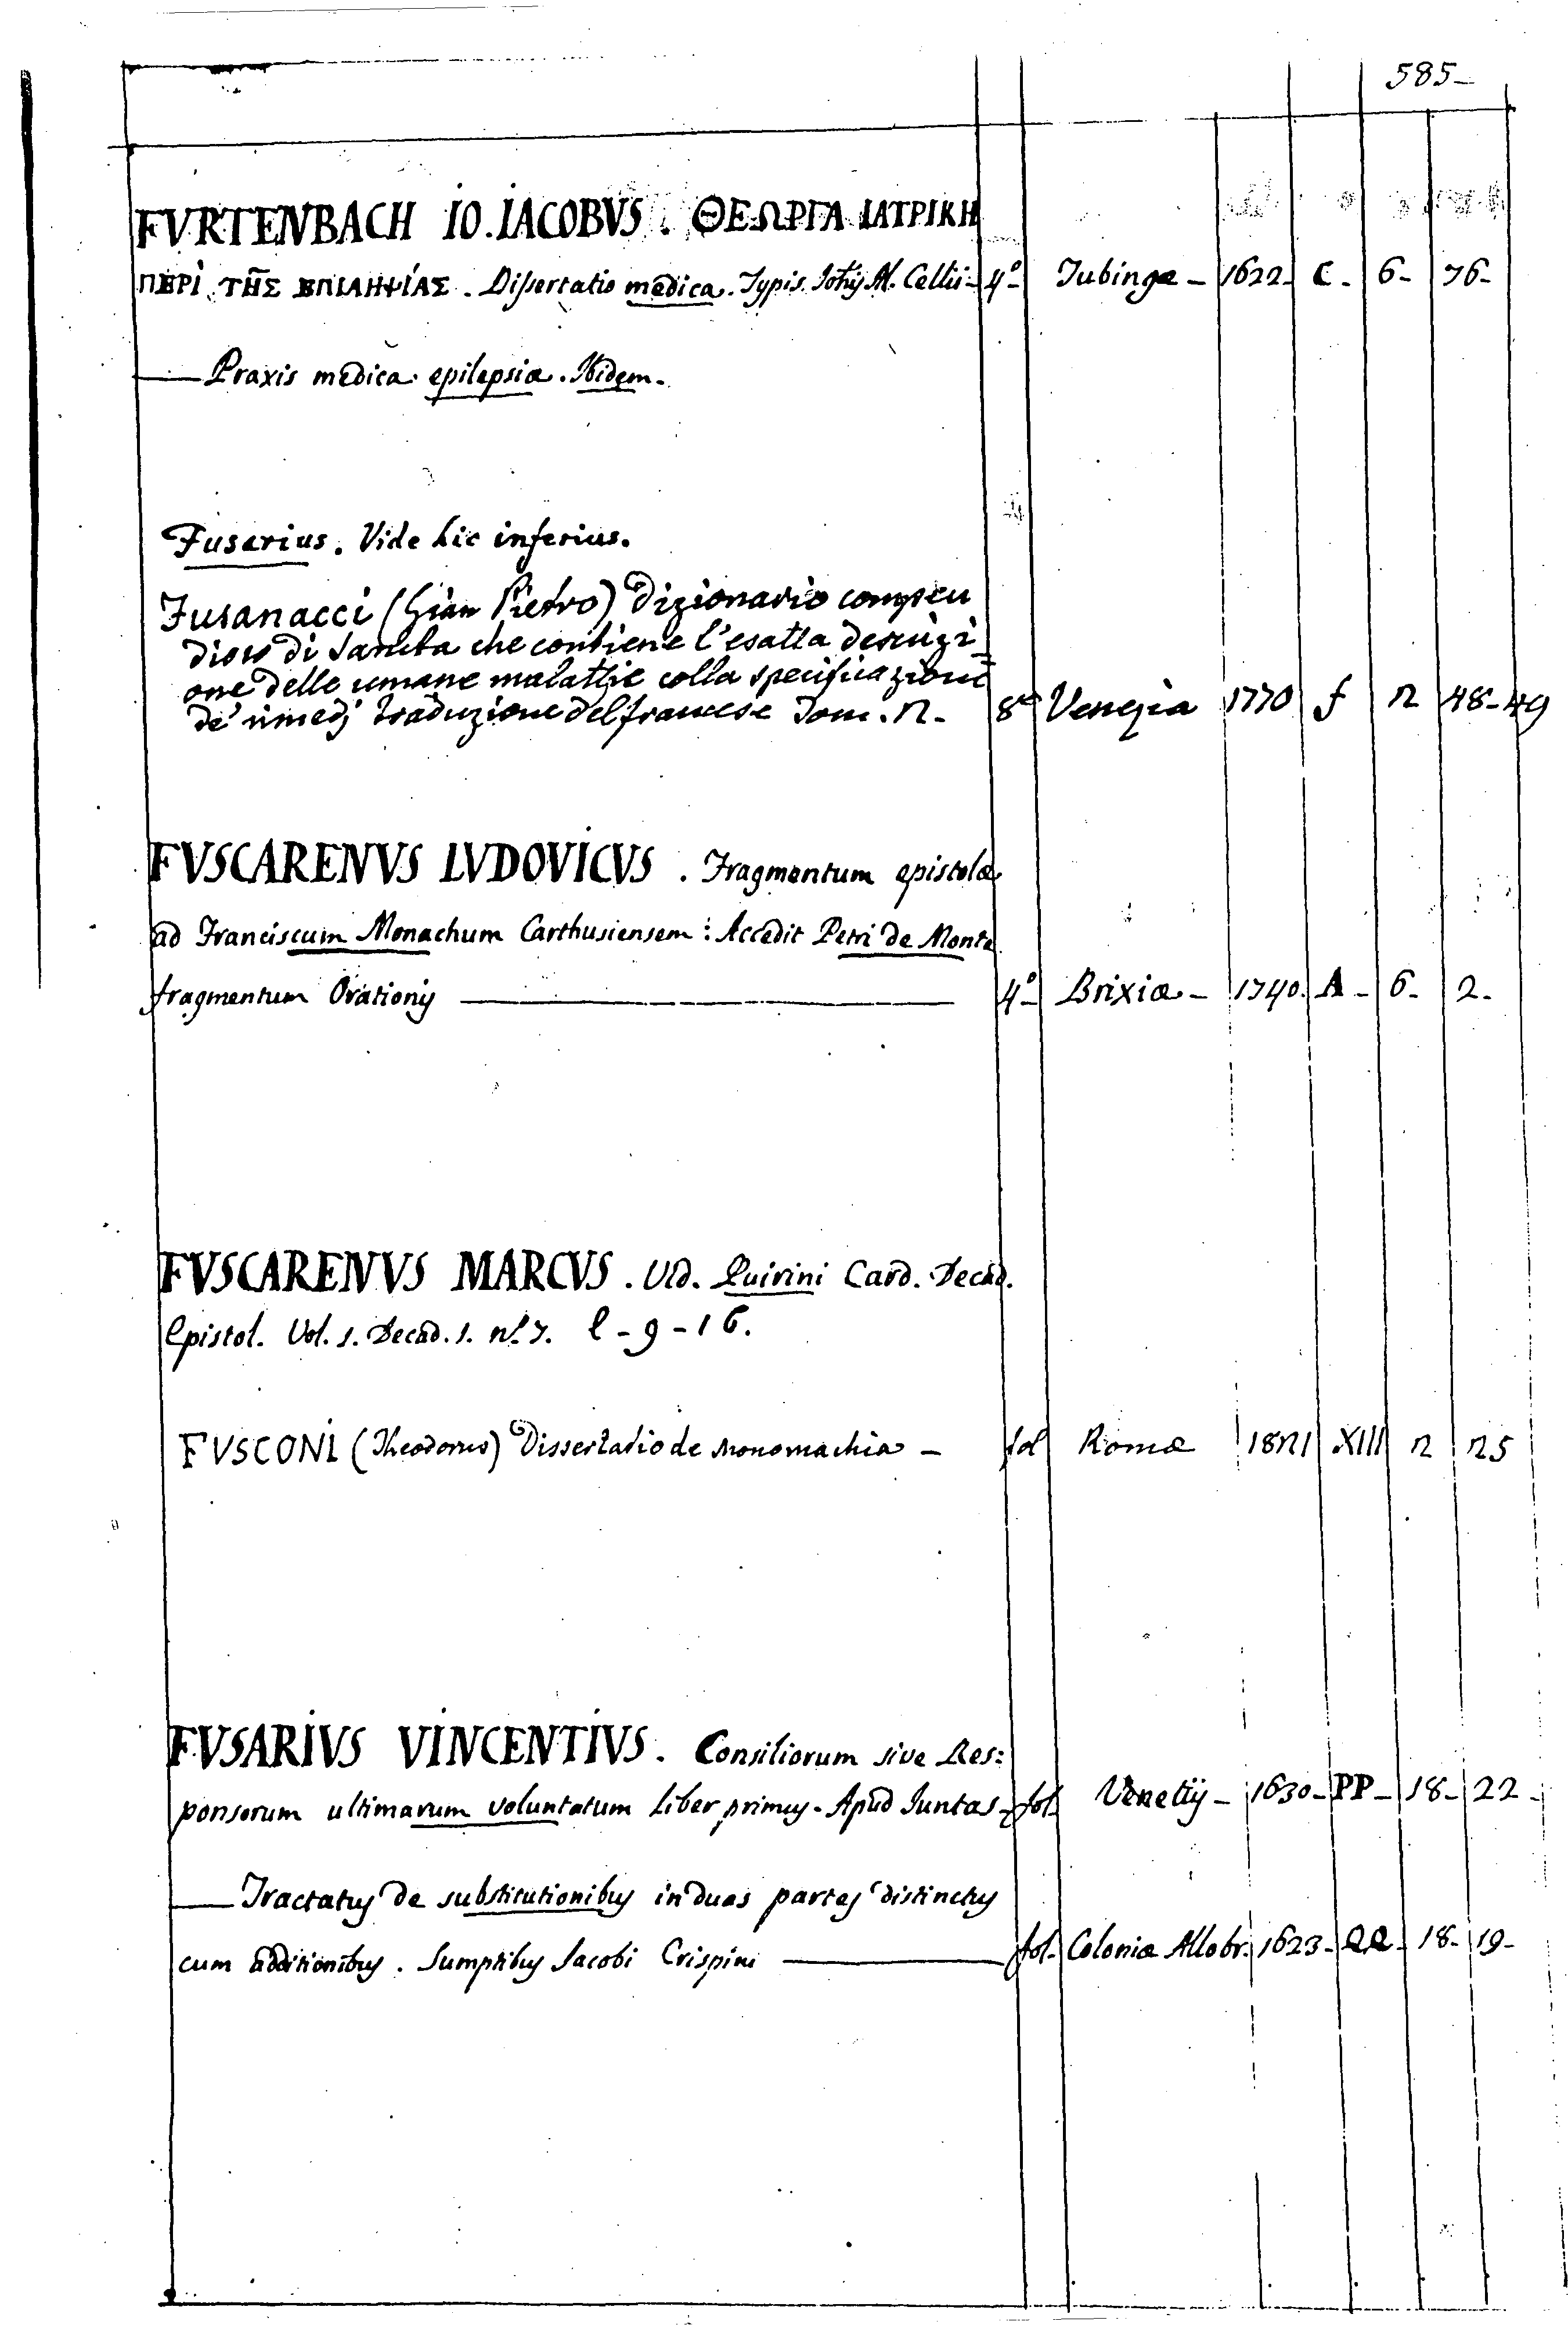 585-
FVRTENBACH IO. IACOBVS. ΘΕΩΡΓΑ ΙΑΤΡΙΚΗ
ΠΕΡΙ ΤΗΣ ΕΠΙΛΗΨΙΑΣ. Dissertatio medica. Typis Al. Cellii - 4º Tubingæ - 1622 - C - 6 - 76 -
— Praxis medica epilepsiæ. Ibidem.
Fusarius. Vide hic inferius.
Fusanacci (Gian Pietro) Dizionario compen
dioso di Sanita che contiene l'esatta descrizi
one delle umane malattie colla specificazione
de' rimedj traduzione del francese Tom. 2. 8º Venezia 1770 f 2 48-49
FVSCARENVS LVDOVICVS. Fragmentum epistolæ
ad Franciscum Monachum Carthusiensem: Accedit Petri de Monte
fragmentum Orationis — 4º Brixiæ - 1740. A - 6 - 2 -
FVSCARENVS MARCVS. Vid. Quirini Card. Decad.
Epistol. Vol. 1. Decad. 1. nº. 7. l - 9 - 16.
FVSCONI (Theodorus) Dissertatio de Monomachia - fol Romæ 1821 XIII 2 25
FVSARIVS VINCENTIVS. Consiliorum sive Res:
ponsorum ultimarum voluntatum Liber primus. Apud Juntas - fol. Venetijs - 1630 - PP - 18 - 22 -
— Tractatus de substitutionibus in duas partes distinctus
cum additionibus. Sumptibus Jacobi Crispini — fol. Coloniæ Allobr. 1623 - QQ - 18 - 19 -